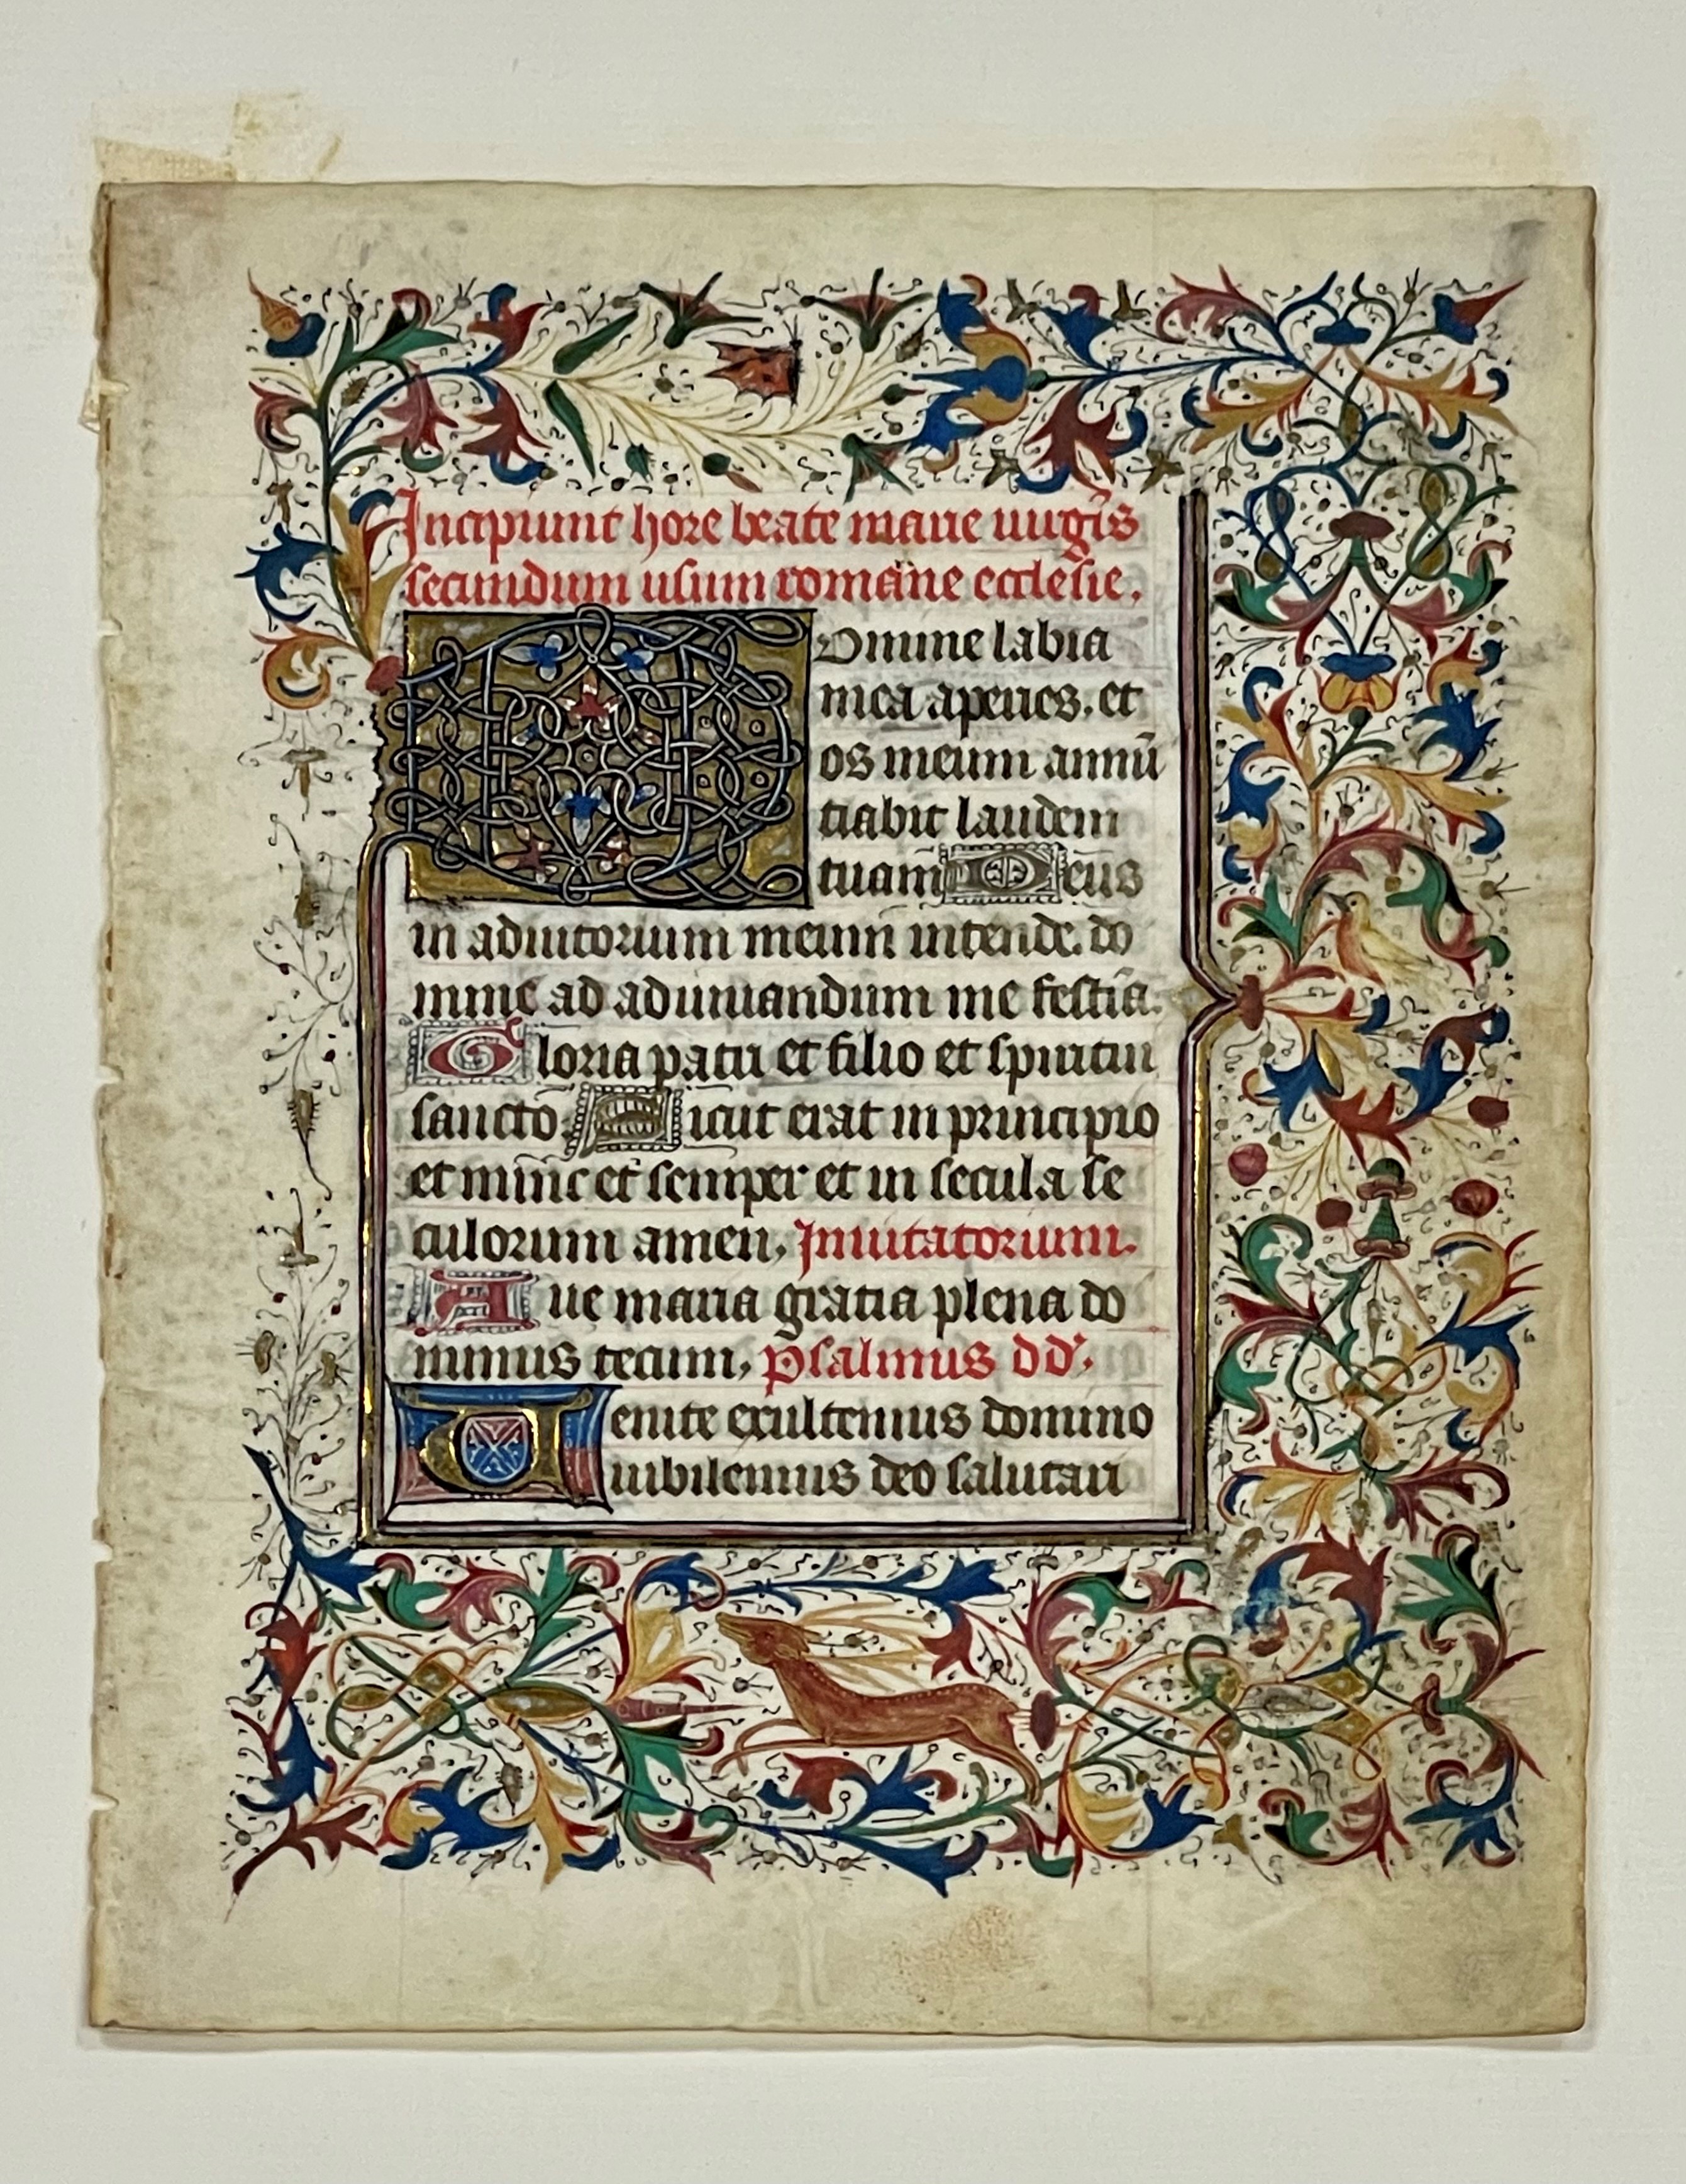 Incipiunt hore beate marie uirgīs
secundum usum romane ecclesie.
Domine labia
mea aperies. et
os meum annū
tiabit laudem
tuam Deus
in adiutorium meum intende. do
mine ad adiuuandum me festia.
Gloria patri et filio et spiritui
sancto. Sicut erat in principio
et nunc et semper et in secula se
culorum amen. Inuitatorium.
Aue maria gratia plena do
minus tecum. psalmus dd'.
Uenite exultemus domino
iubilemus deo salutari